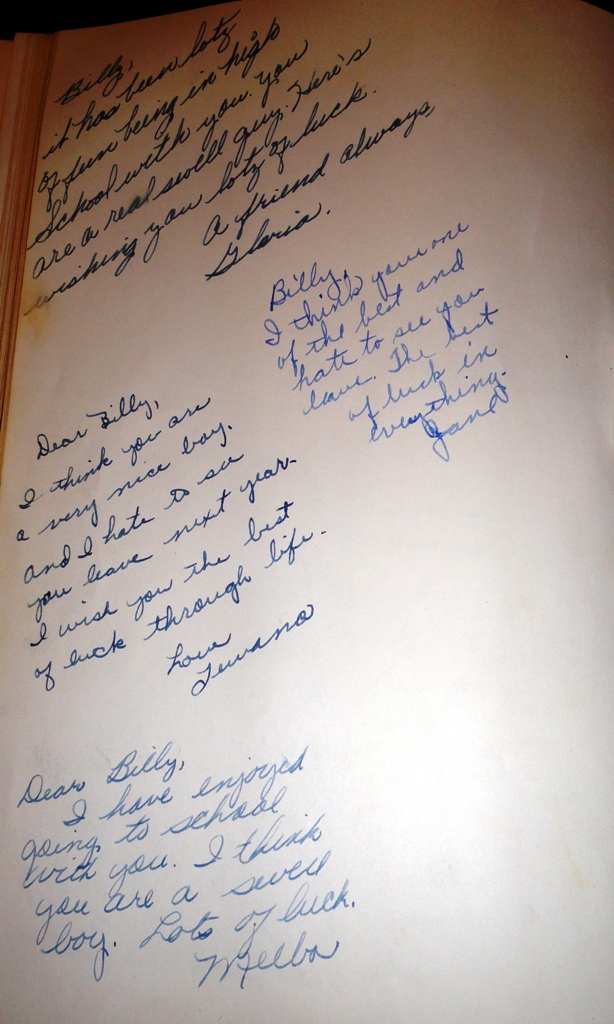 Billy,
it has been lotz
of fun being in high
School with you. You
are a real swell guy. Here's
wishing you lotz of luck.
A friend always,
Gloria.
Billy,
I think your one
of the best and
hate to see you
leave. The best
of luck in
everything.
Jane
Dear Billy,
I think you are
a very nice boy.
and I hate to see
you leave next year.
I wish you the best
of luck through life.
Love
Tewana
Dear Billy,
I have enjoyed
going to school
with you. I think
you are a swell
boy. Lots of luck.
Melba